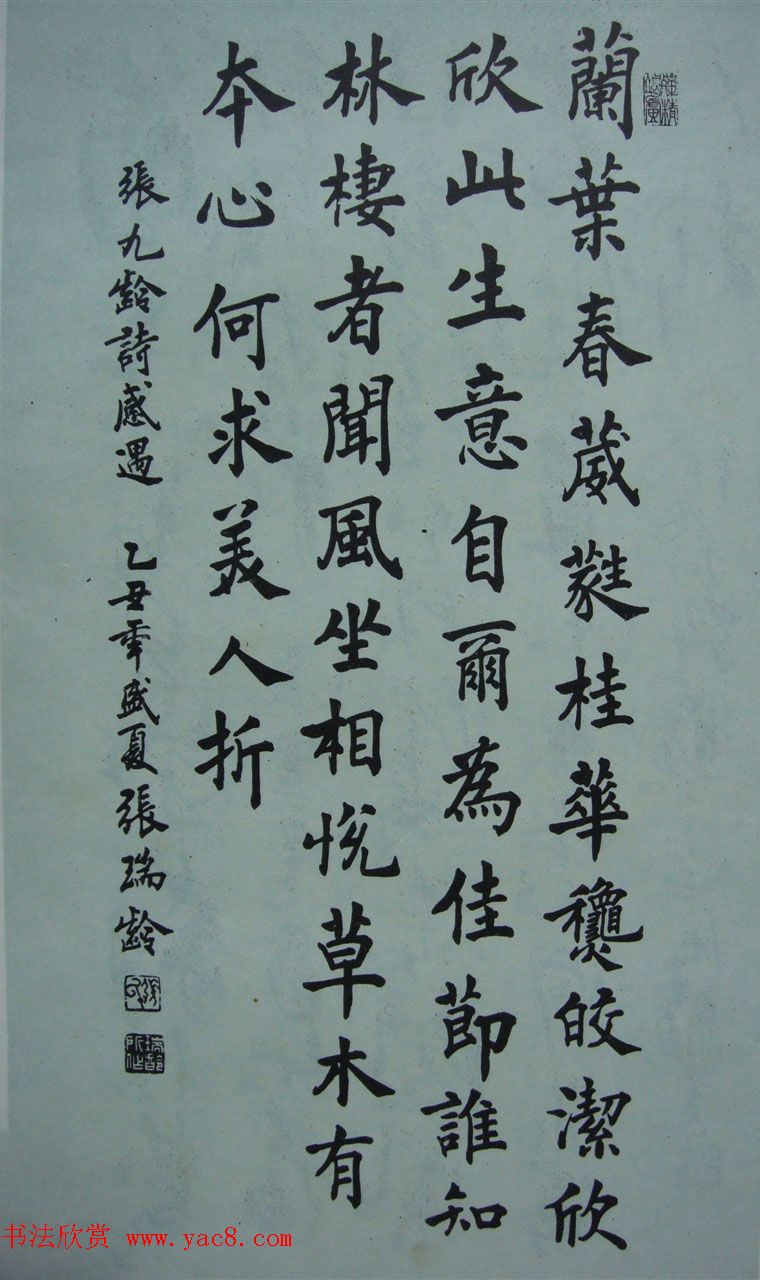 蘭葉春葳蕤桂華龝皎潔欣
欣此生意自爾為佳莭誰知
林棲者聞風坐相悅草木有
本心何求美人折
張九齡詩感遇 乙丑年盛夏張瑞齡
书法欣赏 www.yac8.com